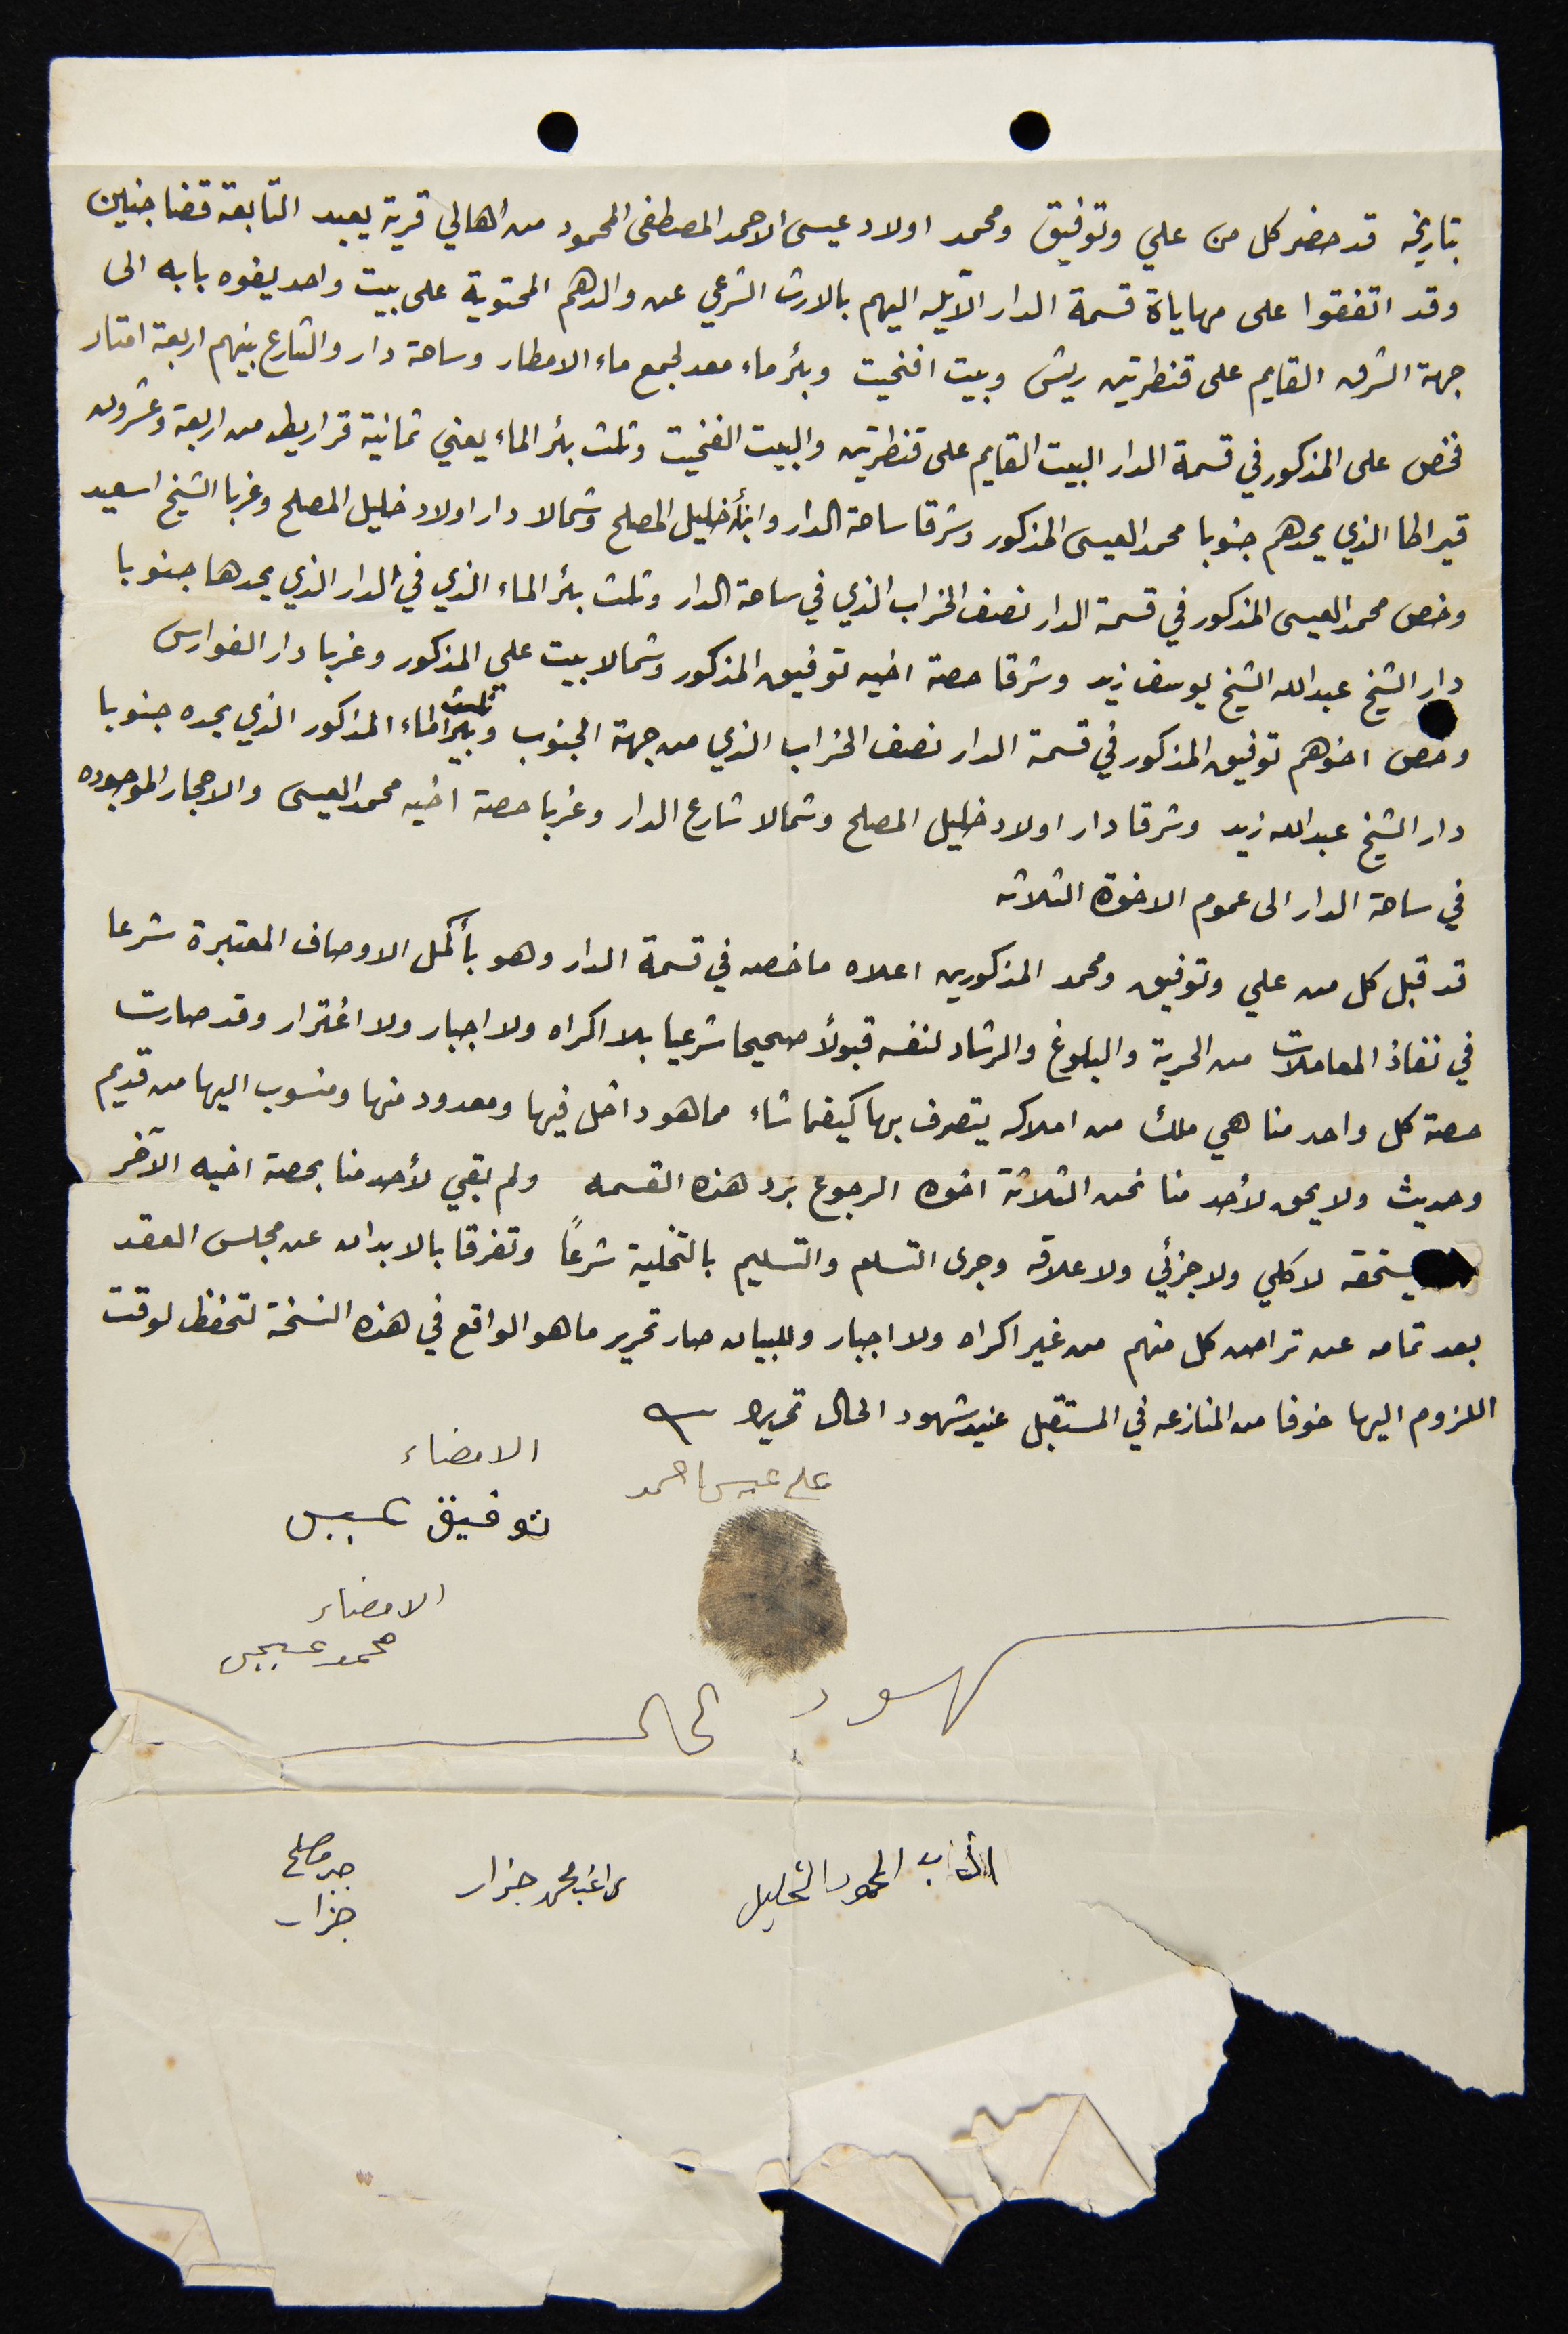 بتاريخه قد حضر كل من علي وتوفيق ومحمد اولاد عيسى الاحمد المصطفى المحمود من اهالي قرية يعبد التابعة قضا جنين
وقد اتفقوا على مهاياة قسمة الدار الآيله اليهم بالارث الشرعي عن والدهم المحتوية على بيت واحد يفوه بابه الى
جهة الشرق القايم على قنطرتين ريش وبيت افنجيت وبئر ماء معد لجمع ماء الامطار وساحة دار والشارع بينهم اربعة امتار
فخص على المذكور في قسمة الدار البيت القايم على قنطرتين والبيت الفنجيت وثلث بئر الماء يعني ثمانية قراريط من اربعة وعشرون
قيراطا الذي يحدهم جنوبا محمد العيسى المذكور وشرقا ساحة الدار وابنأ خليل المصلح وشمالا دار اولاد خليل المصلح وغربا الشيخ اسعيد
وخص محمد العيسى المذكور في قسمة الدار نصف الخراب الذي في ساحة الدار وثلث بئر الماء الذي في الدار الذي يحدها جنوبا
دار الشيخ عبدالله الشيخ يوسف زيد وشرقا حصة اخيه توفيق المذكور وشمالا بيت علي المذكور وغربا دار الفوارس
وخص اخوهم توفيق المذكور في قسمة الدار نصف الخراب الذي من جهة الجنوب وثلث بئر الماء المذكور الذي يحده جنوبا
دار الشيخ عبدالله زيد وشرقا دار اولاد خليل المصلح وشمالا شارع الدار وغربا حصة اخيه محمد العيسى والاحجار الموجوده
في ساحة الدار الى عموم الاخوة الثلاثه
قد قبل كل من علي وتوفيق ومحمد المذكورين اعلاه ماخصه في قسمة الدار وهو بأكمل الاوصاف المعتبرة شرعا
في نفاذ المعاملات من الحرية والبلوغ والرشاد لنفسه قبولأ صحيحا شرعيا بلا اكراه ولا اجبار ولا اغترار وقد صارت
حصة كل واحد منا هي ملك من املاكه يتصرف بها كيفما شاء مما هو داخل فيها ومعدود منها ومنسوب اليها من قديم
وحديث ولا يحق لأحد منا نحن الثلاثة اخوه الرجوع برد هذه القسمه ولم بقي لأحد منا بحصة اخيه الآخر
يستحقه لا كلي ولا جزئي ولا علاقه وجرى التسلم والتسليم بالتخلية شرعاً وتفرقا بالابدان عن مجلس العقد
بعد تمامه عن تراض كل منهم من غير اكراه ولا اجبار وللبيان صار تحرير ما هو الواقع في هذه النسخة لتحفظ لوقت
اللزوم اليها خوفا من المنازعه في المستقبل عنيد شهود الحال تحريرا
علي عيسى احمد
الامضاء
توفيق عيسى
الامضاء
محمد عيسى
شهود الحال
المحمود الخليل
راغب محمد جزار
جزار